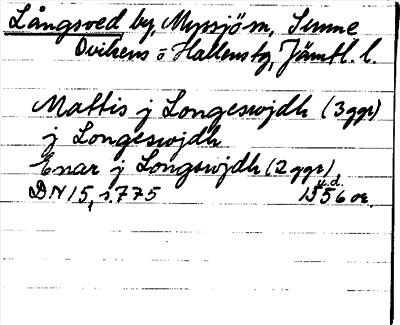 Långsved by, Myssjö sn, Sunne
Ovikens o Hallens tg, Jämtl. l.
Mattis j Longeswjdh (3 ggr)
j Longeswjdh
Enar j Longswjdh (2 ggr)
u.d.
DN 15, s. 775 1556 or.